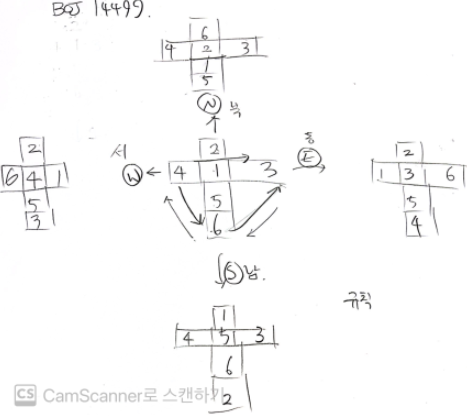 BOJ 14499.
6
4 2 3
1
5
N 북
서 W
동 E
2
6 4 1
5
3
2
4 1 3
5
6
2
1 3 6
5
4
S 남.
규칙
1
4 5 3
6
2
CS CamScanner로 스캔하기